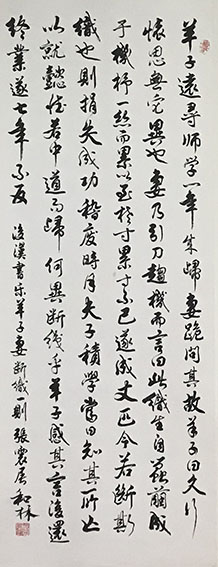 羊子遠尋師學一年來歸妻跪問其故羊子曰久行
懷思無它異也妻乃引刀趨機而言曰此織生自蠶繭成
于機杼一絲而累以至於寸累寸不已遂成丈匹今若斷斯
織也則捐失成功稽廢時月夫子積學當日知其所亡
以就懿德若中道而歸何異斷織乎羊子感其言復還
終業遂七年不反 後漢書樂羊子妻斷織一則 張震 和林